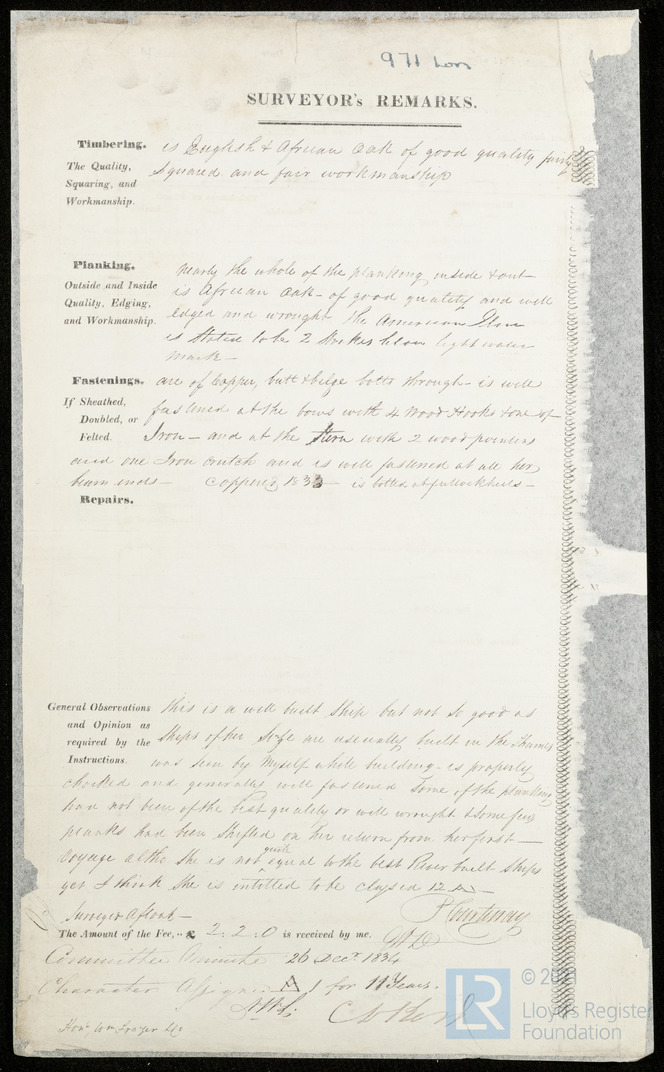 971 Lon
SURVEYOR's REMARKS.
Timbering. is English & African Oak of good quality fairly
The Quality, Squaring, and Workmanship. Squared and fair workmanship
Planking. nearly the whole of the planking inside & out
Outside and Inside is African Oak - of good quality and well
Quality, Edging, and Workmanship. edged and wrought the American Elm
is stated to be 2 Strakes below light water
mark -
Fastenings. are of Copper, butt & bilge bolts through - is well
If Sheathed, Doubled, or fastened at the bows with 4 Wood Hooks & one of
Felted. Iron - and at the Stern with 2 wood pointers
and one Iron Crutch and is well fastened at all her
beam ends - Coppered 183 - is bolted at
Repairs.
General Observations This is a well built Ship but not so good as
and Opinion as required by the Ships of her Size are usually built in the Thames
Instructions. was seen by Myself while building - is properly
chocked and generally well fastened Some of the planking
had not been of the best quality or well wrought & Some few
planks had been Shifted on her return from her first -
Voyage altho She is not quite equal to the best River built Ships
yet I think She is intitled to be classed 12 A -
Surveyed Afloat - Courtenay
The Amount of the Fee, £ 2:2:0 is received by me.
Committee Minute 26 Decr 1834
Character Assigned A 1 for 11 Years.
Honl Wm Frazer
LR
© 2021
Lloyd's Register
Foundation